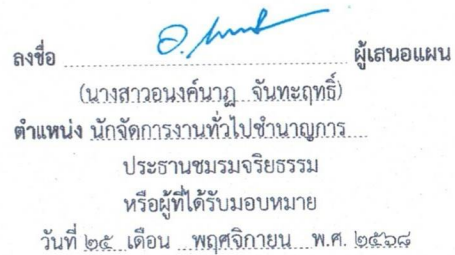 ลงชื่อ ผู้เสนอแผน
(นางสาวอนงค์นาฏ จันทะฤทธิ์)
ตำแหน่ง นักจัดการงานทั่วไปชำนาญการ
ประธานชมรมจริยธรรม
หรือผู้ที่ได้รับมอบหมาย
วันที่ ๒๕ เดือน พฤศจิกายน พ.ศ. ๒๕๖๘